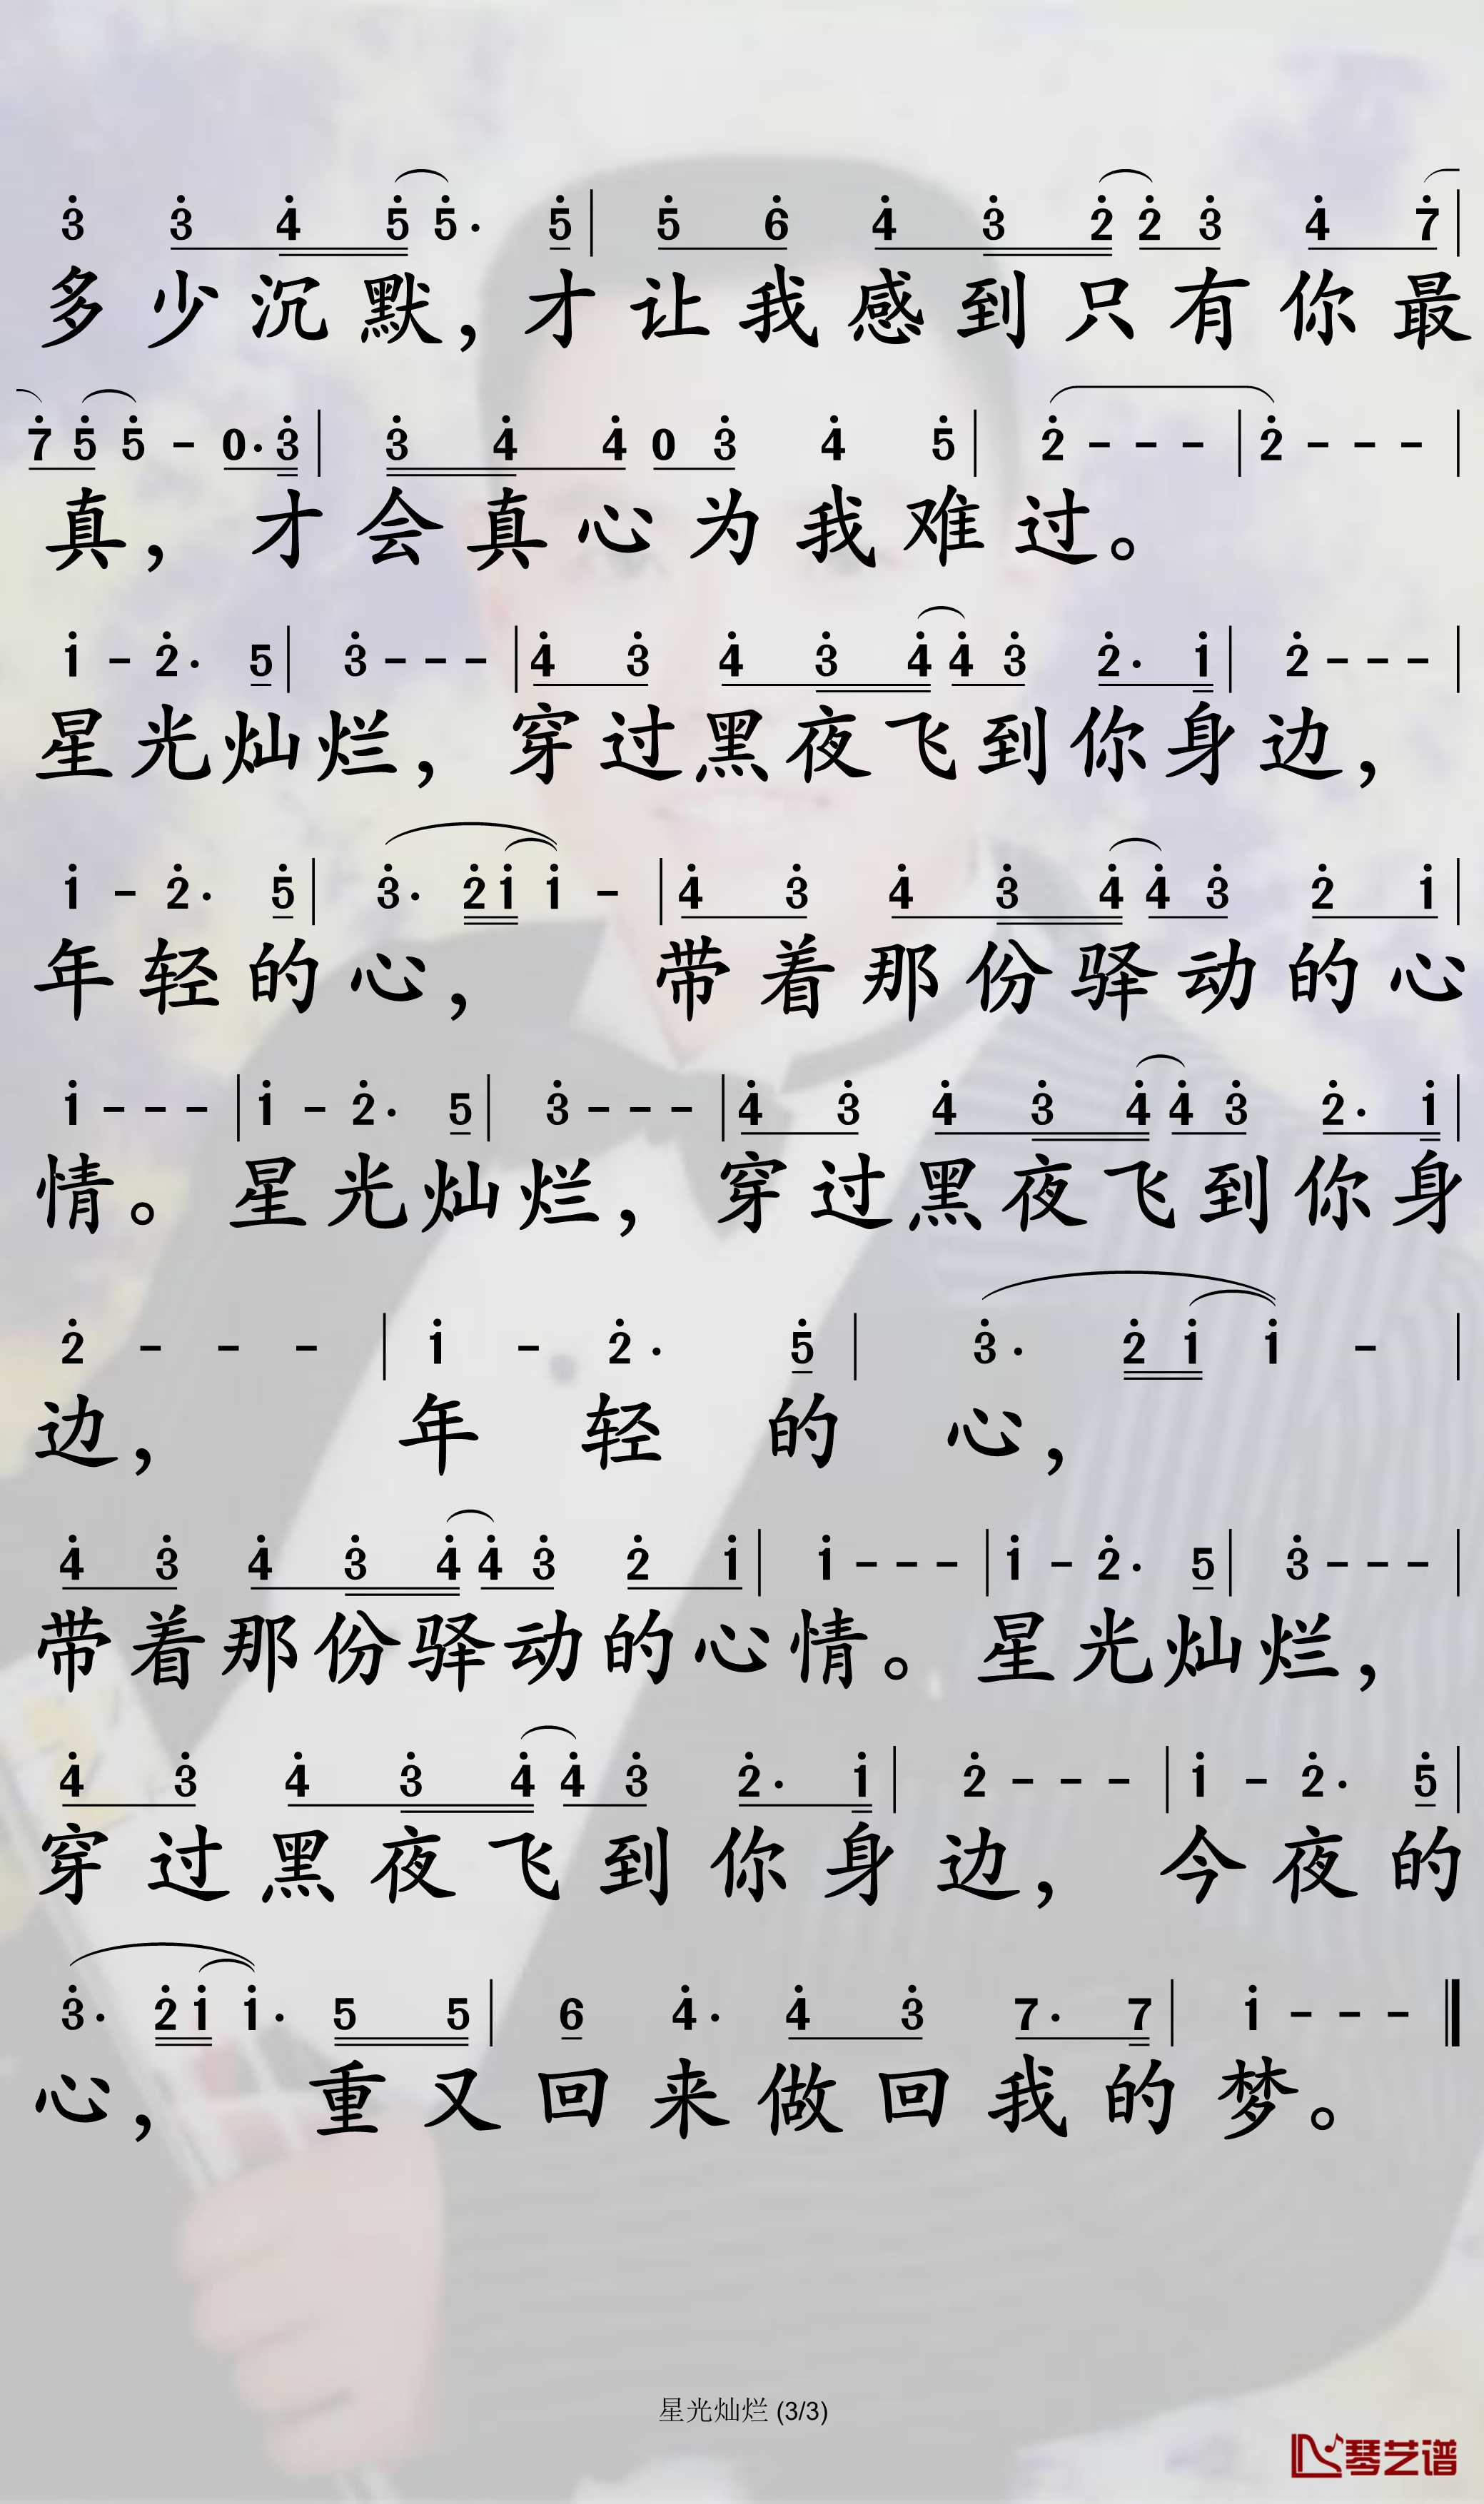 3̇ 3̇ 4̇ 5̇ 5̇· 5̇ | 5̇ 6̇ 4̇ 3̇ 2̇ 2̇ 3̇ 4̇ 7̇ |
多少沉默，才让我感到只有你最
7̇ 5̇ 5̇ - 0· 3̇ | 3̇ 4̇ 4̇ 0 3̇ 4̇ 5̇ | 2̇ - - - | 2̇ - - - |
真，才会真心为我难过。
1̇ - 2̇· 5 | 3̇ - - - | 4̇ 3̇ 4̇ 3̇ 4̇ 4̇ 3̇ 2̇· 1̇ | 2̇ - - - |
星光灿烂，穿过黑夜飞到你身边，
1̇ - 2̇· 5̇ | 3̇· 2̇ 1̇ 1̇ - | 4̇ 3̇ 4̇ 3̇ 4̇ 4̇ 3̇ 2̇ 1̇ |
年轻的心，带着那份驿动的心
1̇ - - - | 1̇ - 2̇· 5 | 3̇ - - - | 4̇ 3̇ 4̇ 3̇ 4̇ 4̇ 3̇ 2̇· 1̇ |
情。星光灿烂，穿过黑夜飞到你身
2̇ - - - | 1̇ - 2̇· 5̇ | 3̇· 2̇ 1̇ 1̇ - |
边，年轻的心，
4̇ 3̇ 4̇ 3̇ 4̇ 4̇ 3̇ 2̇ 1̇ | 1̇ - - - | 1̇ - 2̇· 5 | 3̇ - - - |
带着那份驿动的心情。星光灿烂，
4̇ 3̇ 4̇ 3̇ 4̇ 4̇ 3̇ 2̇· 1̇ | 2̇ - - - | 1̇ - 2̇· 5̇ |
穿过黑夜飞到你身边，今夜的
3̇· 2̇ 1̇ 1̇· 5 5 | 6 4̇· 4̇ 3̇ 7· 7 | 1̇ - - - ‖
心，重又回来做回我的梦。
星光灿烂 (3/3)
琴艺谱